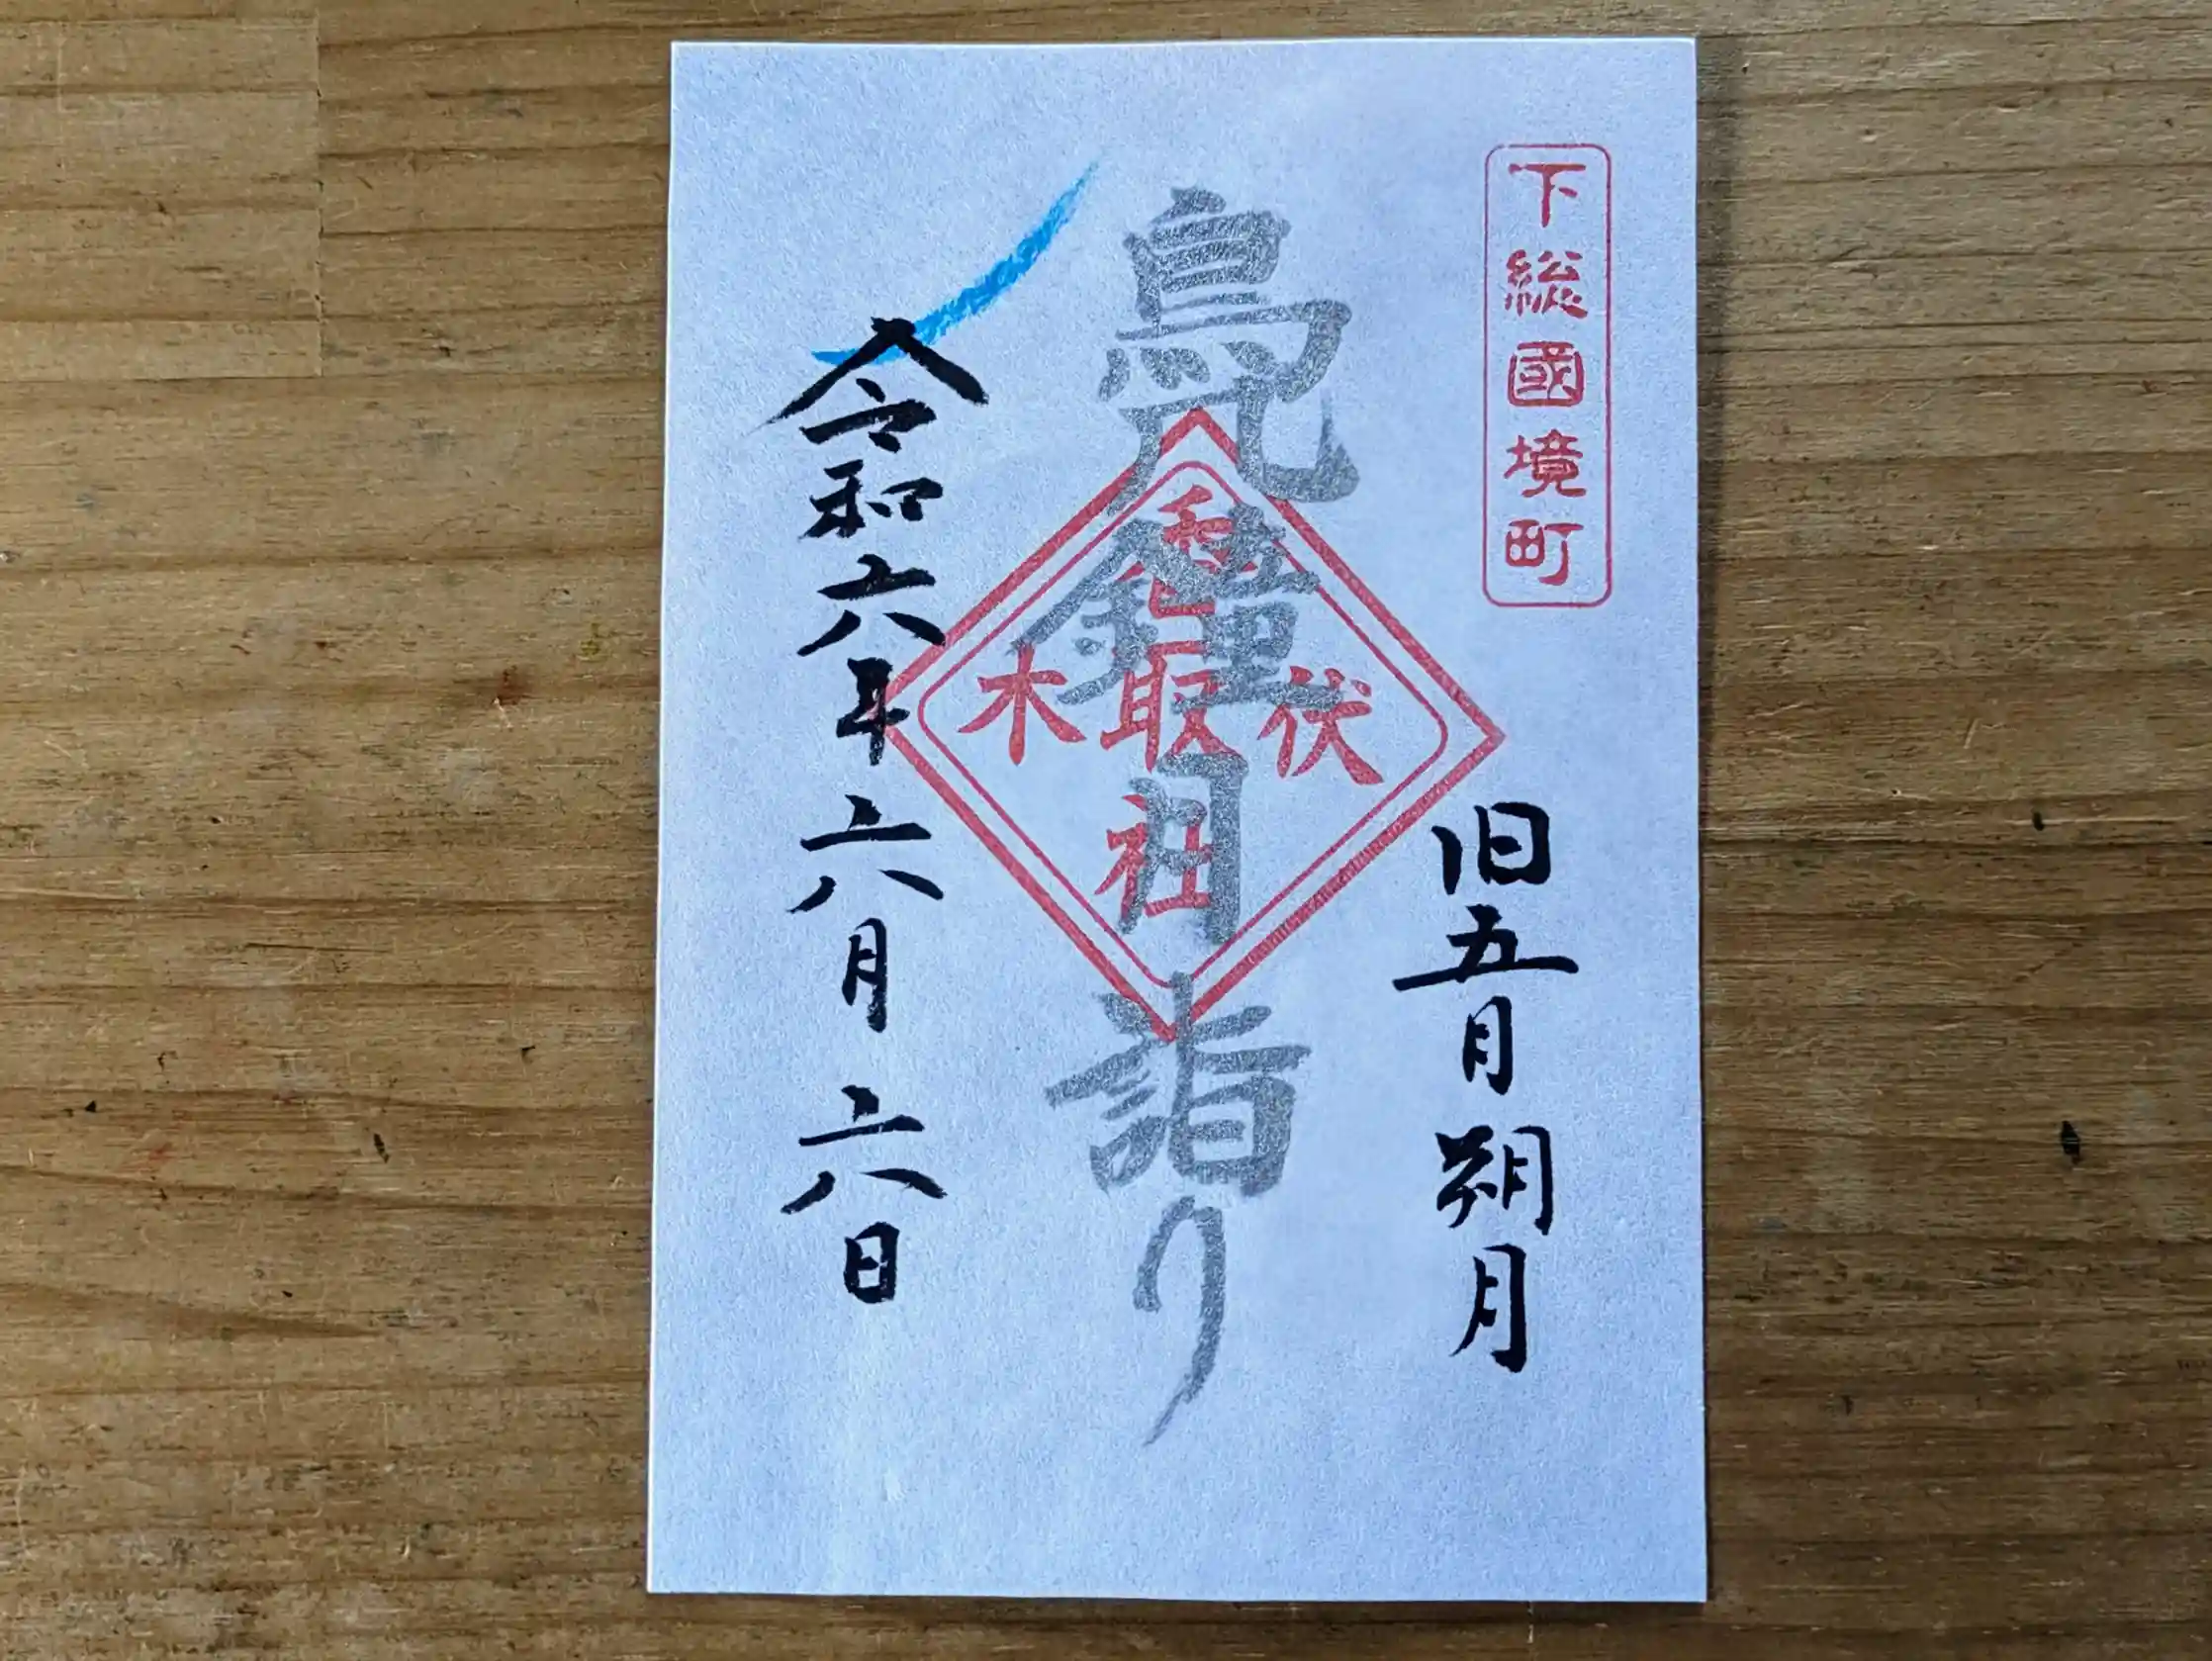 下総國境町
旧五月朔月
鳧鐘月詣り
伏木
香取社
令和六年六月六日